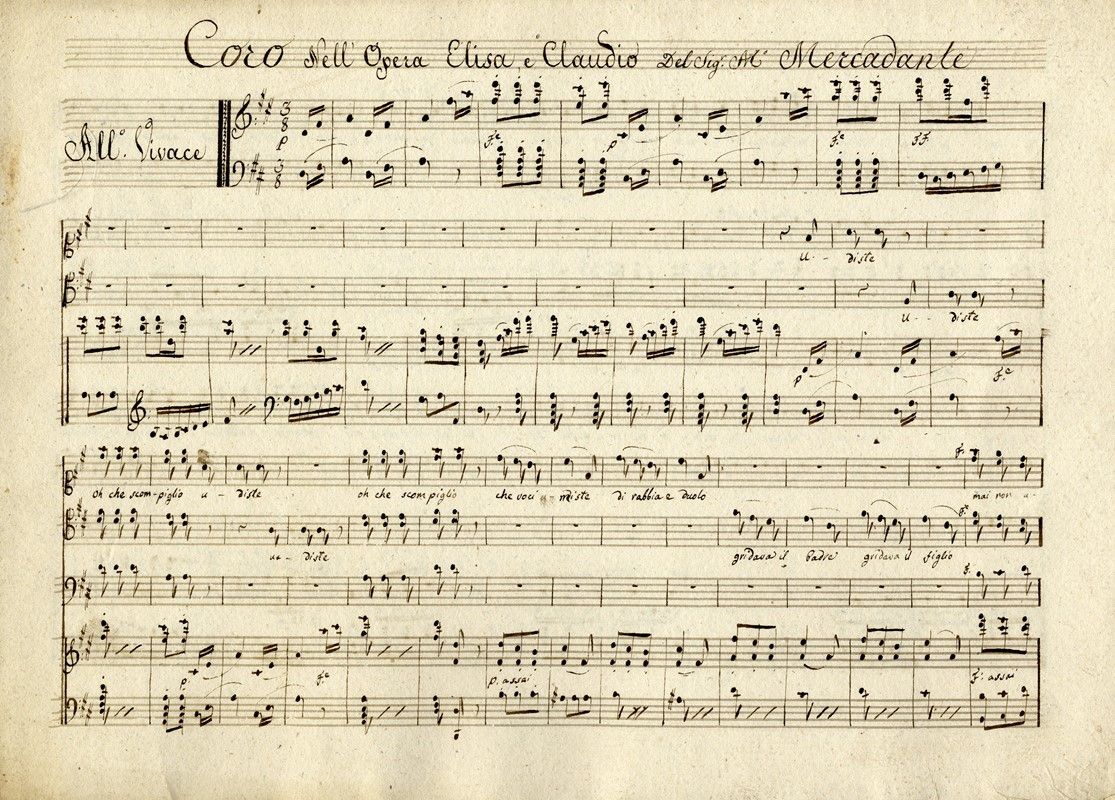 Coro Nell' Opera Elisa e Claudio Del Sig.r M.o Mercadante
All.o Vivace
3 8 p F.e p F.e FF.
3 8
u - diste
u - - diste
p F.e
F.
oh che scom-piglio u - diste oh che scompiglio che voci miste di rabbia e duolo mai non u-
F.e
u - - diste gridava il Padre gridava il figlio
F.
p. F.e p. assai F. assai